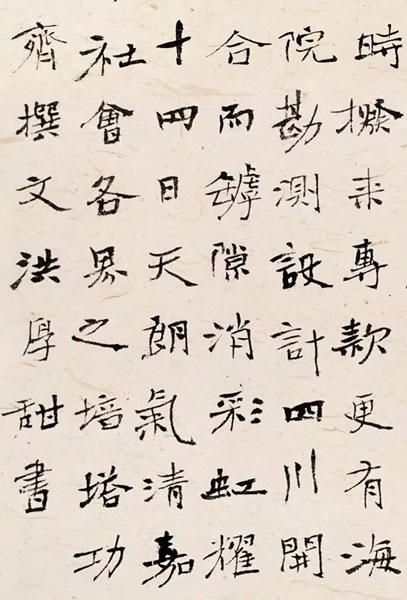 時撥来專款更有海
院勘測設計四川開
合而罅隙消彩虹耀
十四日天朗氣清嘉
社會各界之培塔功
齊撰文洪厚甜書